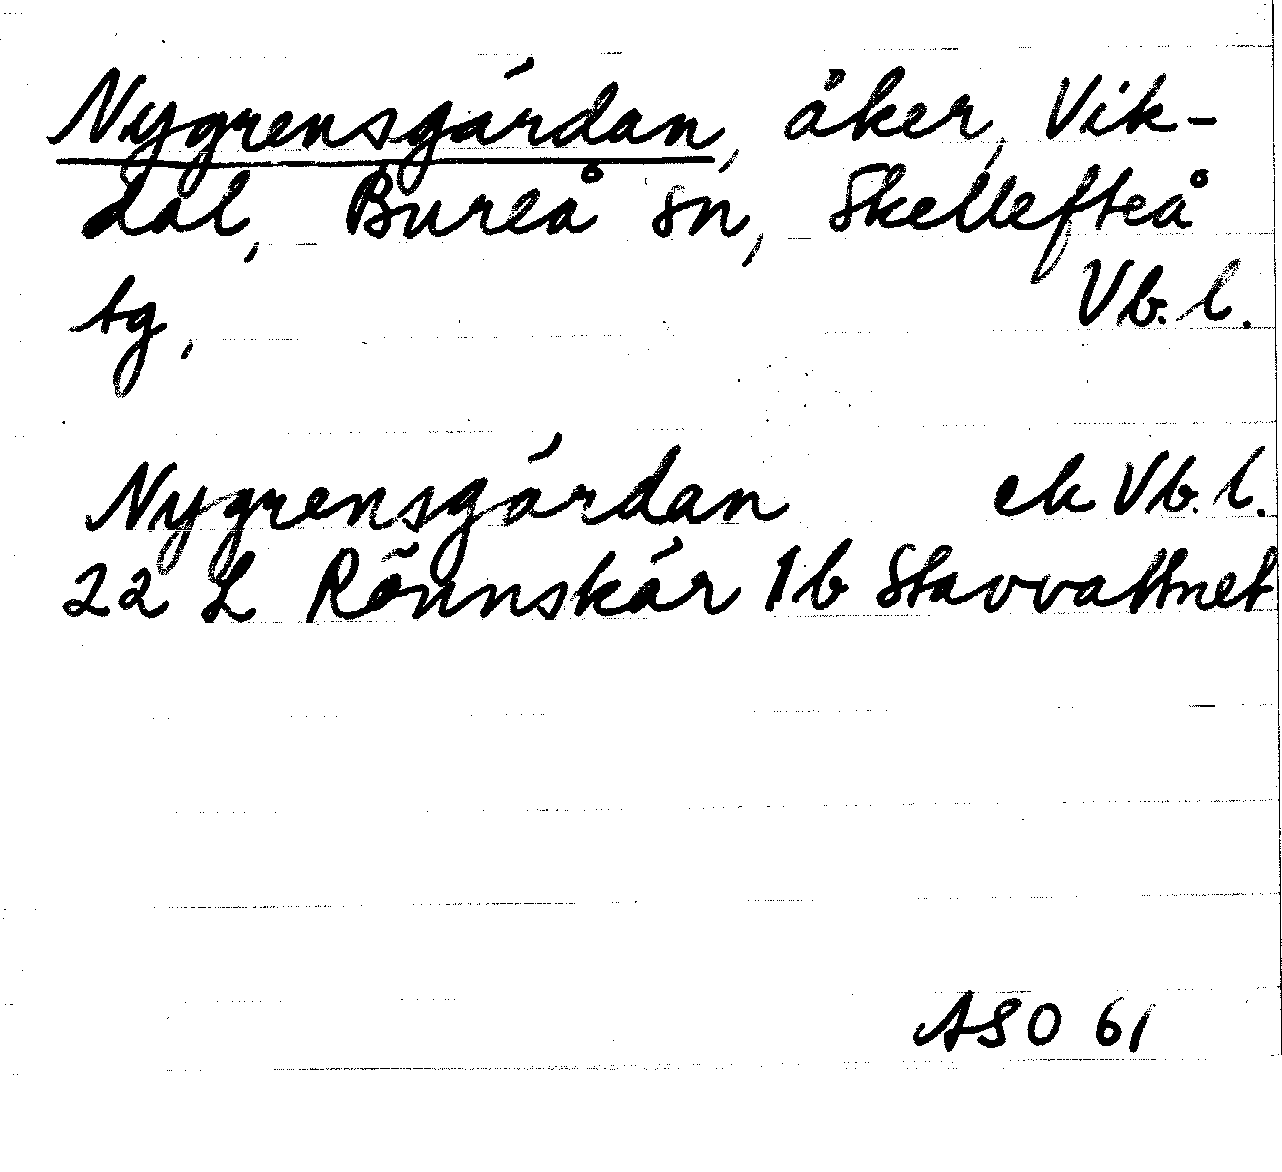 Nygrensgárdan, åker, Vik-
dal, Bureå sn, Skellefteå
tg, Vb. l.
Nygrensgárdan ek Vb. l.
22 L Rönnskär 1 b Stavvattnet
ASO 61